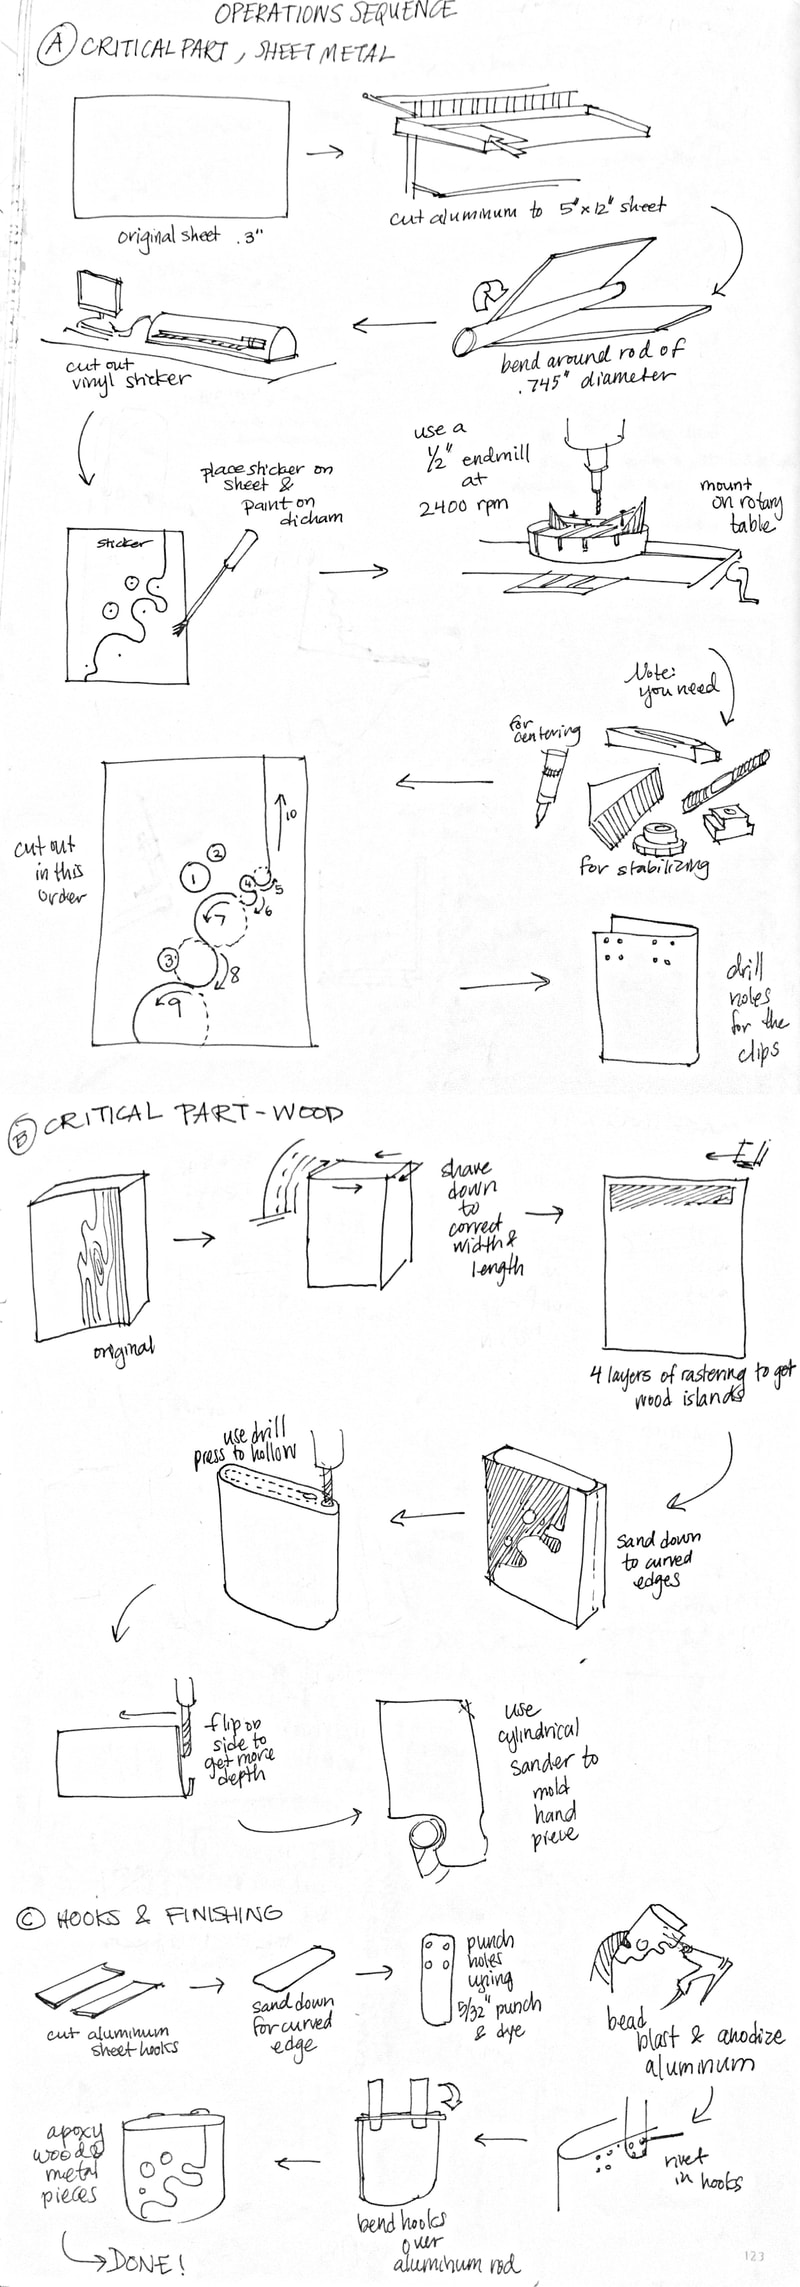 OPERATIONS SEQUENCE
A CRITICAL PART, SHEET METAL
original sheet .3"
cut aluminum to 5"x12" sheet
bend around rod of
.745" diameter
cut out
vinyl sticker
place sticker on
sheet &
paint on
dicham
sticker
use a
1/2" endmill
at
2400 rpm
mount
on rotary
table
Note:
you need
for
centering
for stabilizing
cut out
in this
order
1
2
3
4
5
6
7
8
9
10
drill
holes
for the
clips
B CRITICAL PART - WOOD
original
shave
down
to
correct
width &
length
4 layers of rastering to get
wood islands
sand down
to curved
edges
use drill
press to hollow
flip on
side to
get more
depth
use
cylindrical
sander to
mold
hand
pieve
C HOOKS & FINISHING
cut aluminum
sheet hooks
sand down
for curved
edge
punch
holes
using
5/32" punch
& dye
bead
blast & anodize
aluminum
rivet
in hooks
bend hooks
over
aluminum rod
apoxy
wood &
metal
pieces
DONE!
123